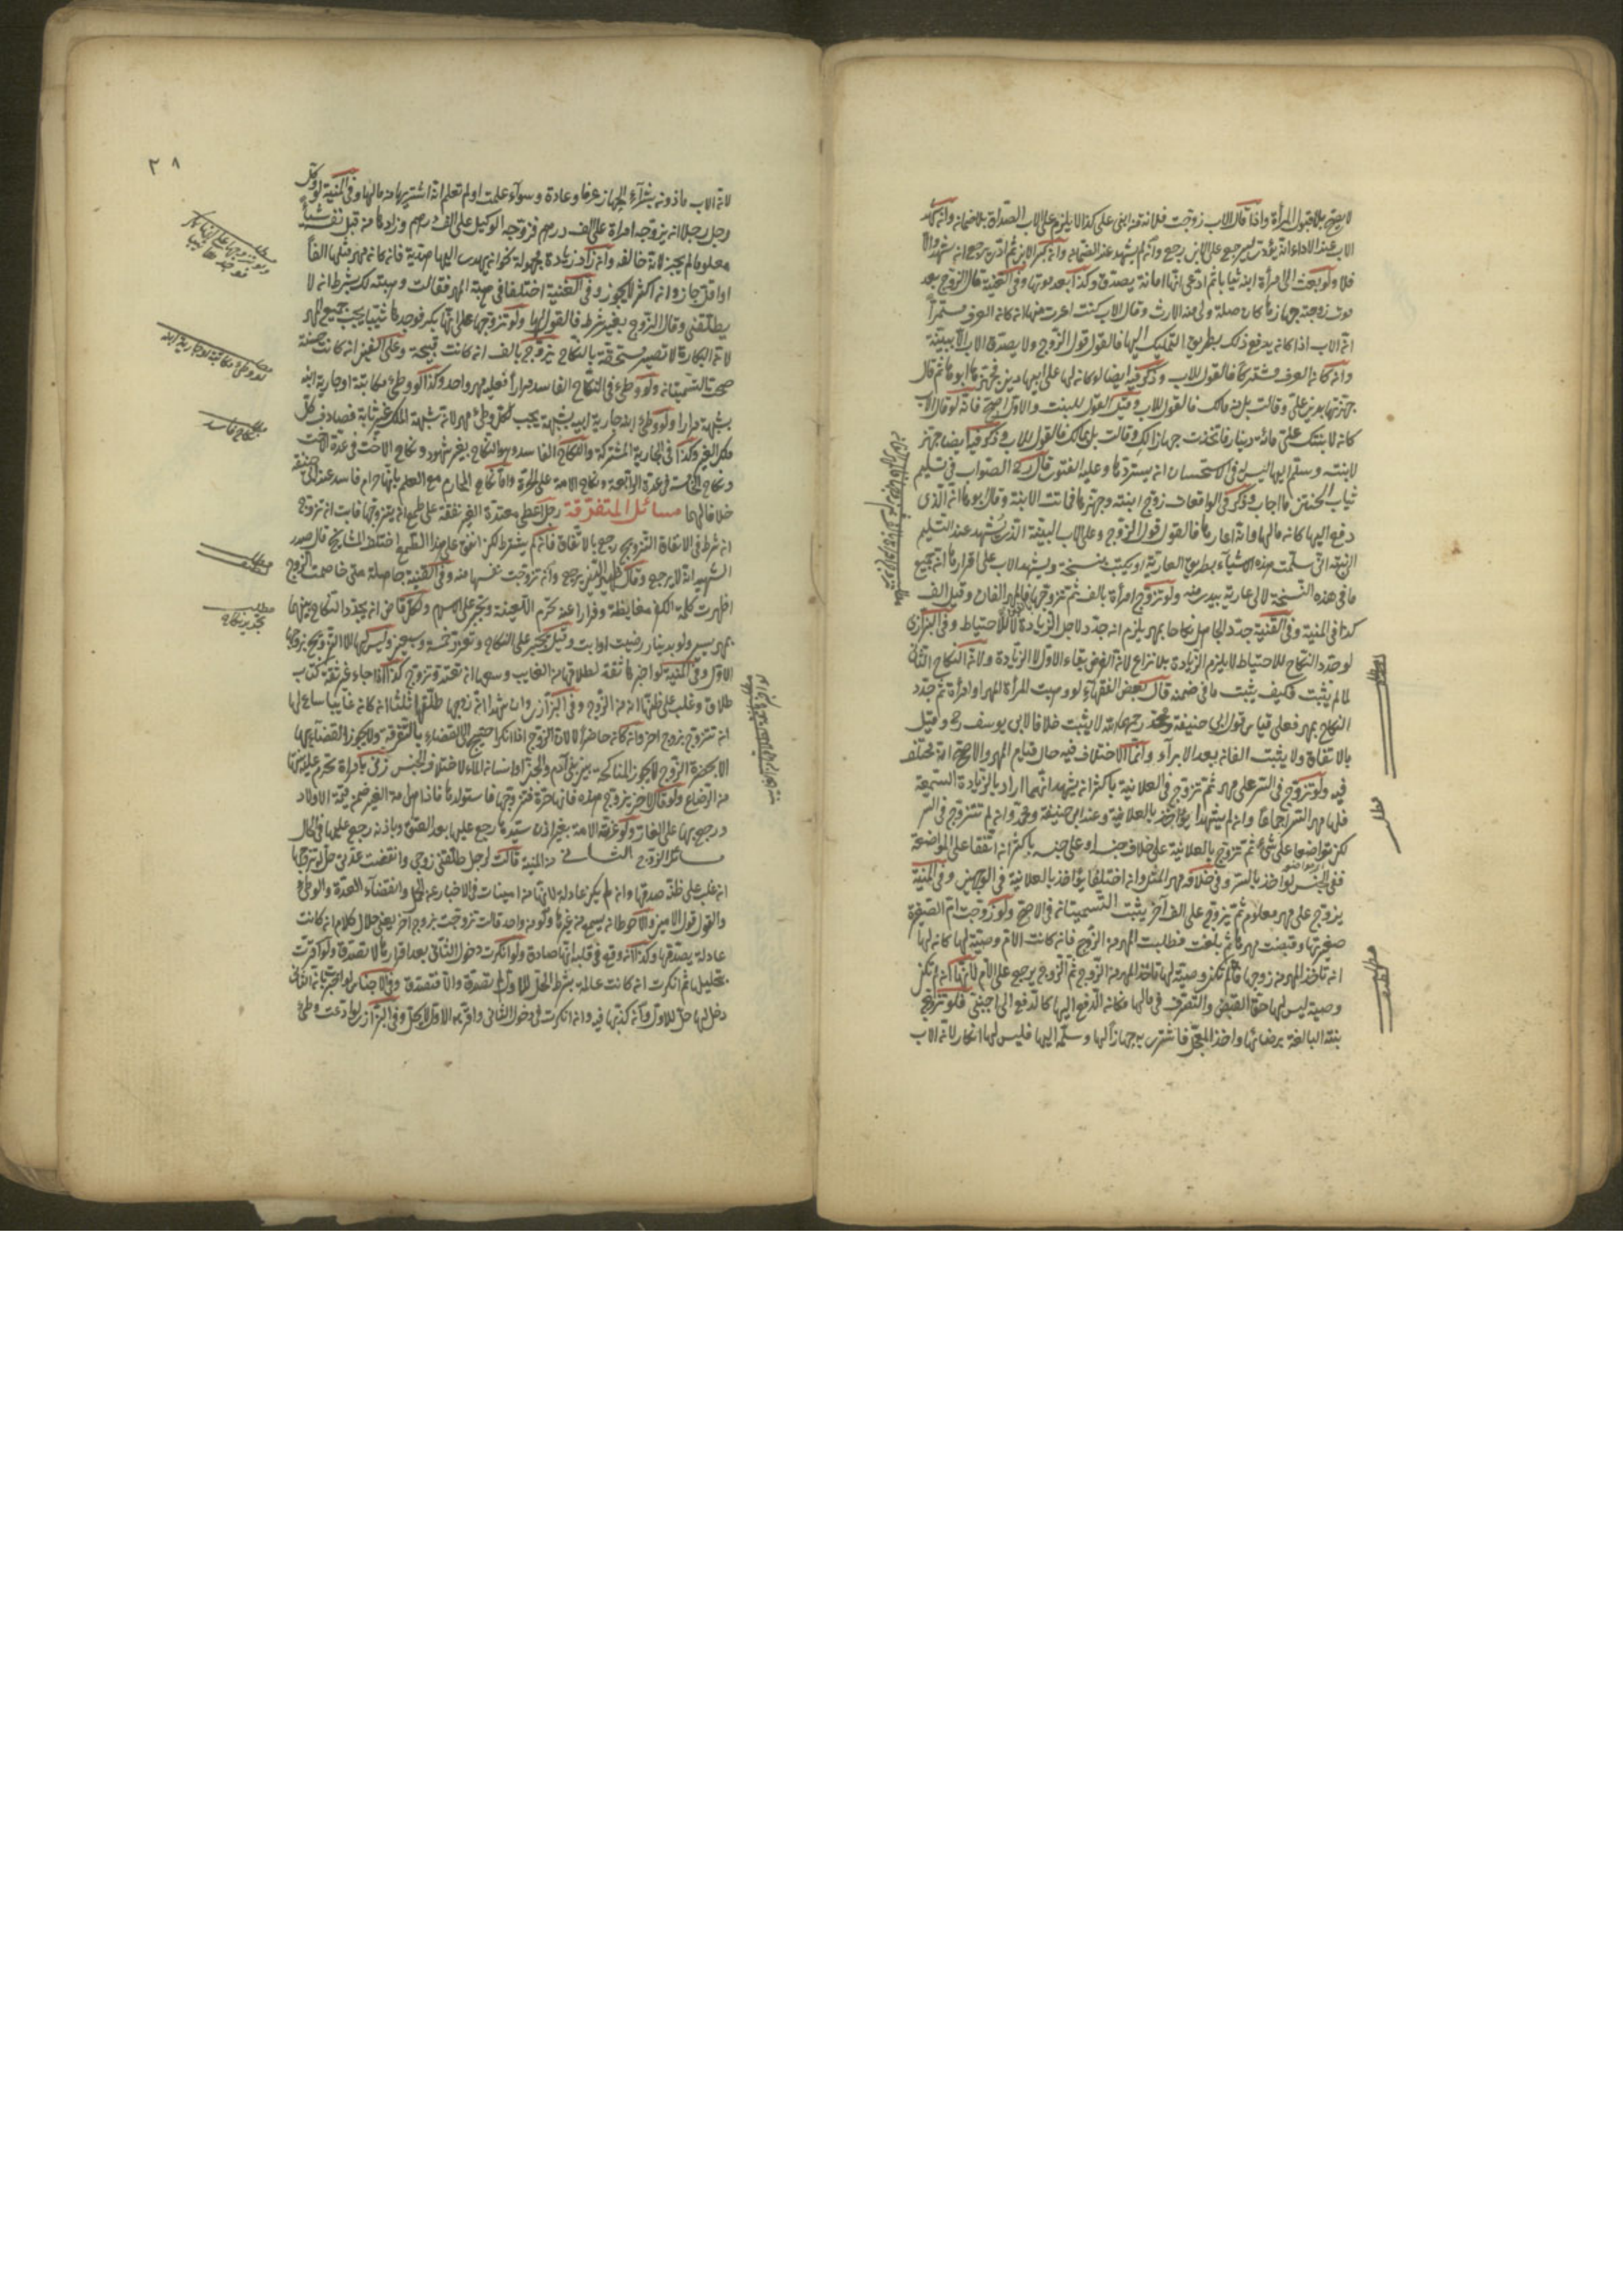 لا يصح بلا قبول المرأة واذا قال الاب زوجت فلانة من ابنى على كذا لا يلزم على الاب الصداق بلا ضمان وان كان
الاب عند الاداء انه يؤدى ليرجع على الابن رجع وان لم يشهد عند الضمان وان كبر الابن ثم ادى يرجع ان شهد والا
فلا ولو بعث الى امرأة ابنه ثيابا ثم ادعى انها امانة يصدق وكذا بعد موتها وفى القنية قال الزوج بعد
موت زوجته جهازها كان صلة ولى منه الارث وقال الاب كنت اعرت منها ان كان العرف مستمرا
ان الاب اذا كان يدفع ذلك بطريق التمليك اليها فالقول قول الزوج ولا يصدق الاب الا ببينة
وان كان العرف مشتركا فالقول للاب وذكر فيه ايضا لو كان لها على ابيها دين فجهزها ابوها ثم قال
جهزتها بدين على وقالت بل من مالك فالقول للاب وقيل القول للبنت والاول اصح فانه لو قال الاب
كان لابنتك على مائة دينار فاتخذت جهازا لك وقالت بل بمالك فالقول للاب وذكر فيه ايضا جهز
لابنته وسلم اليها ليس له فى الاستحسان ان يستردها وعليه الفتوى قال الصواب فى تسليم
ثياب وذكر فى الواقعات زوج ابنته وجهزها فماتت الابنة وقال ابوها ان الذى
دفع اليها كان مالها وانه اعارها فالقول قول الزوج وعلى الاب البينة ان يشهد عند التسليم
الى البنت انى سلمت هذه الاشياء بطريق العارية او يكتب نسخة ويشهد الاب على اقرارها ان جميع
ما فى هذه النسخة لابى عارية بيدى منه ولو تزوج امرأة بالف ثم تزوجها فالمهر الفان وقيل الف
كذا فى المنية وفى القنية جدد للحاصل نكاحا بمهر يلزم ان جدد لاجل الزيادة لا للاحتياط وفى البزازى
لو جدد النكاح للاحتياط لا يلزم الزيادة بلا نزاع لان الغرض بقاء الاول لا الزيادة ولان النكاح الثانى
لما لم يثبت فكيف يثبت ما فى ضمنه قال بعض الفقهاء لو وهبت المرأة المهر او امرأة ثم جدد
النكاح بمهر فعلى قياس قول ابى حنيفة ومحمد رحمهما الله لا يثبت خلافا لابى يوسف رح وقيل
بالاتفاق ولا يثبت الفان بعد الابراء وانما الاختلاف فيه حال قيام المهر والاصح انه مختلف
فيه ولو تزوج فى السر على مهر ثم تزوج فى العلانية باكثر ان يشهد انهما اراد بالزيادة السمعة
فلها مهر السر اجماعا وان لم يشهدا يؤاخذ بالعلانية وعند ابى حنيفة ومحمد وان لم تتزوج فى السر
لكن تواضعا على شىء ثم تزوج بالعلانية على خلاف جنسه او على جنسه باكثر ان اتفقا على المواضعة
ففى الجنس يؤاخذ بالسر وفى خلافه مهر المثل وان اختلفا يؤاخذ بالعلانية فى الوجهين وفى المنية
يزوج على مهر معلوم ثم يزوج على الف آخر يثبت التسميتان فى الاصح ولو زوجت ام الصغيرة
صغيرتها وقبضت مهرها ثم بلغت فطلبت المهر من الزوج فان كانت الام وصية لها كان لها
ان تأخذ المهر من زوجها فان لم تكن وصية لها تاخذ المهر من الزوج ثم الزوج يرجع على الام لانها ان لم تكن
وصية ليس لها حق القبض والتصرف فى مالها فكان الدفع اليها كالدفع الى اجنبى فلو تزوج
بنته البالغة برضائها واخذ المعجل فاشترى به جهازا لها وسلمه اليها فليس لها انكار لان الاب
مطلب
٣٨
لان الاب ماذون بشراء الجهاز عرفا وعادة وسواء علمت او لم تعلم انه اشتريها من مالها وفى المنية لو وكل
رجل رجلا ان يزوجه امراة على الف درهم فزوجه الوكيل على الف درهم وزادها من قبل نفسه شيأ
معلوما لم يجز لانه خالفه وان زاد زيادة مجهولة نحو ان يهدى اليها هدية فان كان مهر مثلها الفا
او اقل جاز وان اكثر لا يجوز وفى القنية اختلفا فى هبة المهر فقالت وهبته لك بشرط ان لا
يطلقنى وقال الزوج بغير شرط فالقول لها ولو تزوجها على انها بكر فوجدها ثيبا يجب جميع المهر
لان البكارة لا تصير مستحقة بالنكاح يزوج بالف ان كانت قبيحة وعلى الفين ان كانت حسنة
صحت التسميتان ولو وطئ فى النكاح الفاسد مرارا فعليه مهر واحد وكذا لو وطئ مكاتبة او جارية ابنه
بشبهة مرارا ولو وطئ ابن جارية ابيه بشبهة يجب لكل وطئ مهر لان شبهة الملك غير ثابتة فصادف كل
ملك الغير وكذا فى الجارية المشتركة والنكاح الفاسد وهو النكاح بغير شهود ونكاح الاخت فى عدة الاخت
ونكاح الخامسة فى عدة الرابعة ونكاح الامة على الحرة واما نكاح المحارم مع العلم بانها حرام فاسد عند ابى حنيفة
خلافا لهما مسائل المتفرقة رجل اعطى معتدة الغير نفقة على طمع ان يتزوجها فابت ان تزوج
ان شرط فى الانفاق التزويج رجع بالانفاق فان لم يشترط لكن انفق على هذا الطمع اختلف المشايخ قال صدر
الشهيد انه لا يرجع وقال ظهير الدين يرجع وان تزوجت نفسها منه وفى القنية حاصله متى خاصمت الزوج
اظهرت كلمة الكفر مغايظة وفرارا عنه تحرم اللعينة وتجبر على الاسلام ولكل قاض ان يجدد النكاح بينهما
بمهر يسير ولو بدينار رضيت او ابت وقيل تجبر على النكاح وتعزير خمسة وسبعين وليس لها الا التزويج بزوجها
الاول وفى المنية لو اخبرها ثقة بطلاقها من الغايب وسعها ان تعتد وتزوج كذا اذا جاء غير ثقة بكتاب
طلاق وغلب على ظنها انه من الزوج وفى البزازى وان شهدا ان زوجها طلقها ثلثا ان كان غائبا ساع لها
ان تتزوج بزوج اخر وان كان حاضرا لا لان الزوج اذا انكر احتيج الى القضاء بالتفرقة ولا يجوز القضاء بها
الا بحضرة الزوج لا يجوز المناكحة بين بنى آدم والجن وانسان الماء لاختلاف الجنس زنى بامراة تحرم عليه بنتها
من الرضاع ولو قال لاخر تزوج هذه فانها حرة فتزوجها فاستولدها فاذا هى امة الغير ضمن قيمة الاولاد
ورجع بها على الغار ولو غرته الامة بغير اذن سيدها رجع عليها بعد العتق وباذنه رجع عليها فى الحال
مسائل الزوج الثانى من المنية قالت لرجل طلقنى زوجى وانقضت عدتى حل له تزوجها
ان غلب على ظنه صدقها وان لم يكن عادلة لانها من امينات فى الاخبار عن الحل وانقضاء العدة والوطئ
والقول قول الامين والاحوط ان يسمع من غيرها ولو من واحد قالت تزوجت بزوج آخر يعنى حلال كلام ان كانت
عادلة يصدقها وكذا ان وقع فى قلبه انها صادقة ولو انكرت دخول الثانى بعد اقرارها لا تصدق ولو اقرت
بتحليل ثم انكرت ان كانت عالمة بشرط الحل للاول لم تصدق والا فتصدق وفى الاجناس لو اخبرته ان الثانى
دخل بها حل للاول وان كذبها فيه وان انكرت فى دخول الثانى واقر به الاول لا يحل وفى البزازى لو ادعت وطئ
مطلب
ولو تزوجها على انها بكر
فوجدها ثيبا
مطلب
لو وطئ مكاتبة او جارية ابنه
مطلب
نكاح فاسد
مطلب
مطلب
تجديد نكاح